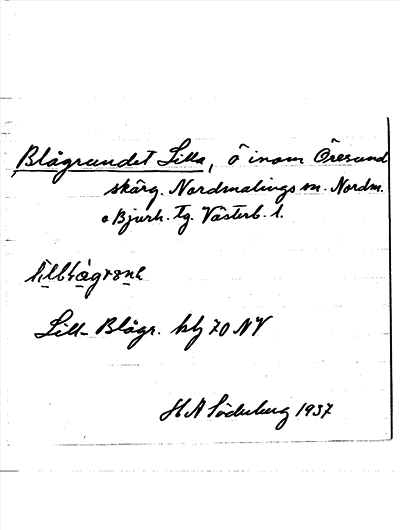 Blågrundet Lilla, ö inom Öresund
skärg. Nordmalings sn. Nordm.
o Bjurh. tg. Västerb. l.
Lill-Blågr. bl 70 NV
H A Söderberg 1937